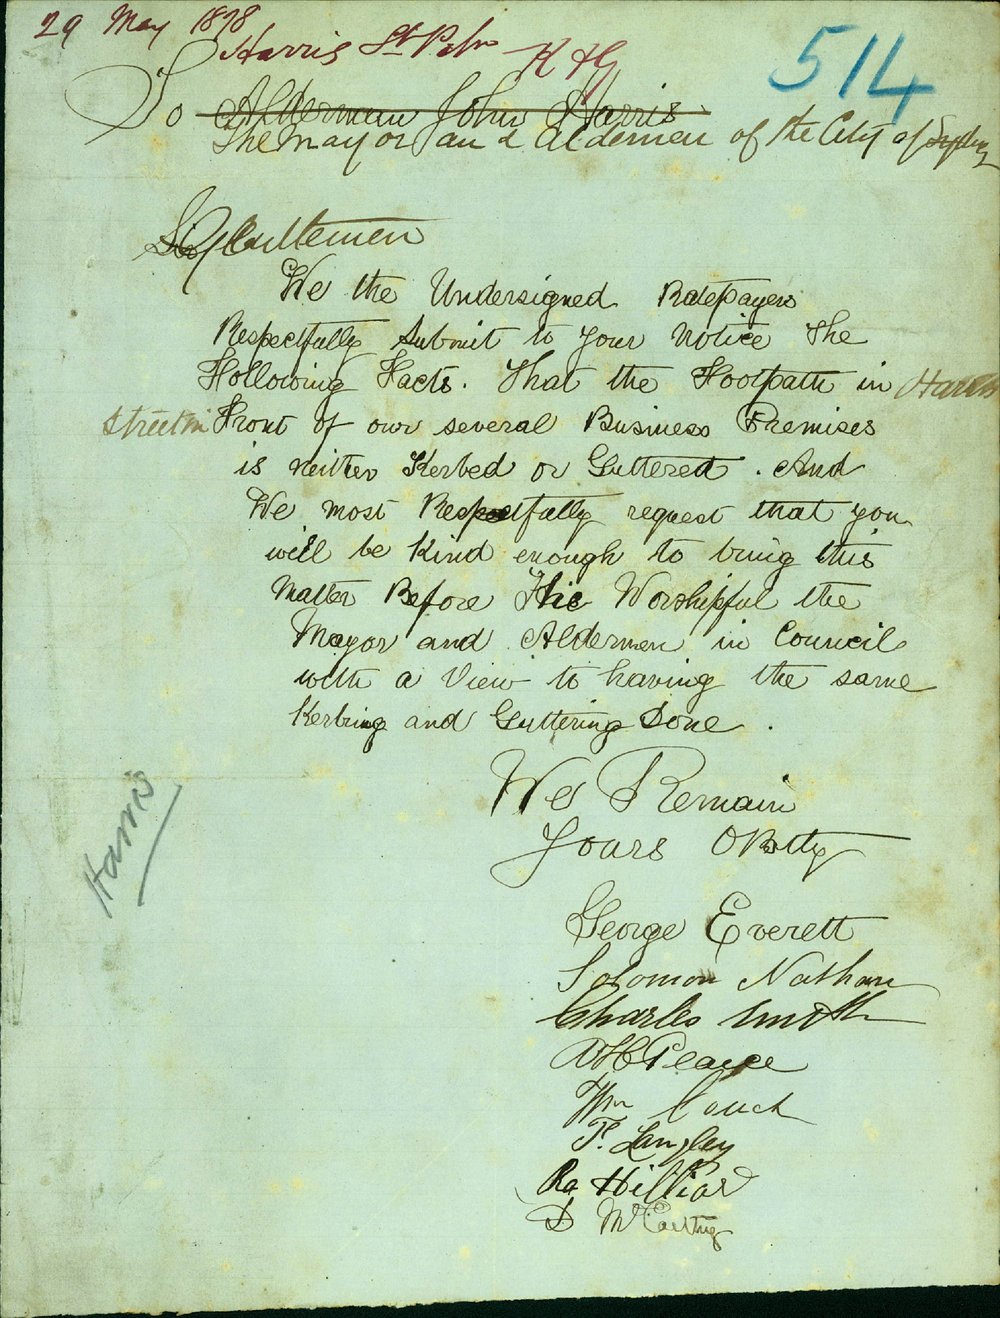 29 May 1878
Harris St Petn K & G
514
To Alderman John Harris
The Mayor and Aldermen of the City of Sydney
Sir Gentlemen
We the Undersigned Ratepayers
Respectfully Submit to your Notice The
Following Facts. That the Footpath in Harris
Street in Front of our several Business Premises
is neither Kerbed or Guttered. And
We most Respectfully request that you
will be Kind enough to bring this
Matter Before The Worshipful the
Mayor and Aldermen in Council
with a View to having the same
Kerbing and Guttering Done.
We Remain
Yours Obtly
Harris
George Everett
Solomon Nathan
Charles Smith
A H C Pearce
Wm Couch
T. Langley
Ro Hilliar
D McCarthy